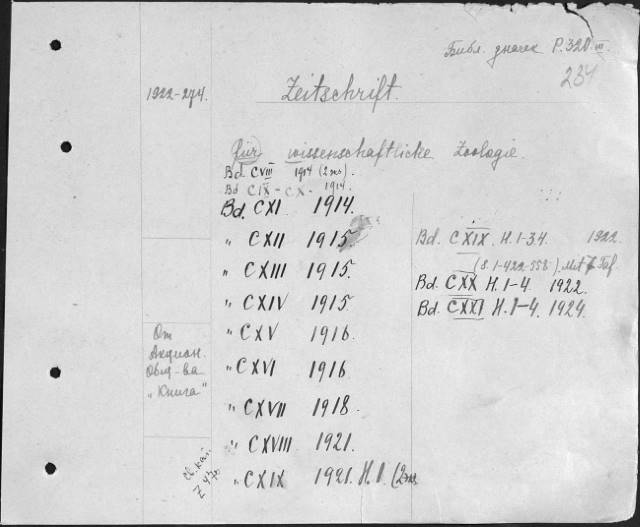 Библ. P. 320 III.
234
1922-274.
Zeitschrift.
für wissenschaftliche Zoologie.
Bd. CVIII 1914 (2 экз).
Bd CIX - CX - 1914.
Bd. CXI 1914.
" CXII 1915.
" CXIII 1915.
" CXIV 1915.
" CXV 1916.
" CXVI 1916
" CXVII 1918.
" CXVIII 1921.
" CXIX 1921. H. 1. (2 экз.
Bd. CXIX, H. 1-3.4. 1922.
(S. 1-422-558). Mit Taf.
Bd. CXX H. 1-4. 1922.
Bd. CXXI H. 1-4. 1924.
От
Акцион.
Общ-ва
"Книга"